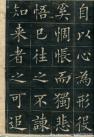 自以心為形役
奚惆悵而獨悲
悟已往之不諫
知來者之可追